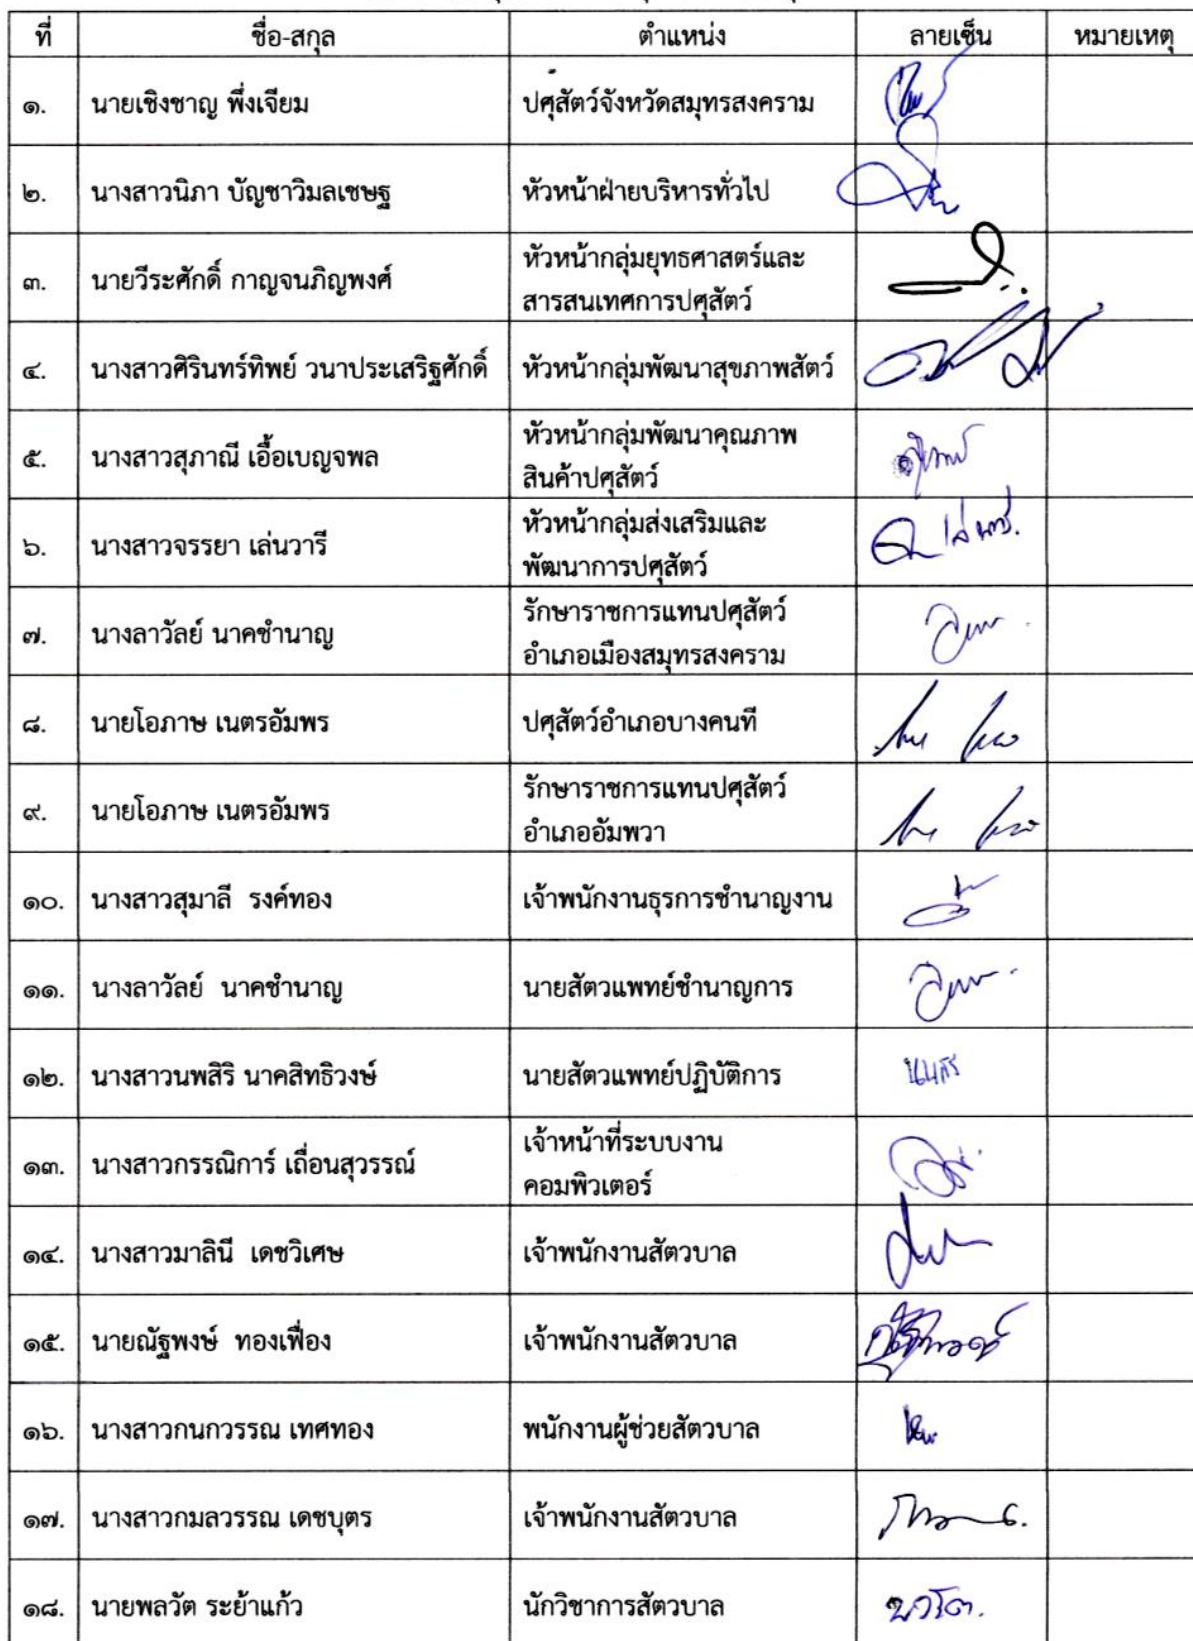 ที่ ชื่อ-สกุล ตำแหน่ง ลายเซ็น หมายเหตุ
๑. นายเชิงชาญ พึ่งเจียม ปศุสัตว์จังหวัดสมุทรสงคราม
๒. นางสาวนิภา บัญชาวิมลเชษฐ หัวหน้าฝ่ายบริหารทั่วไป
๓. นายวีระศักดิ์ กาญจนภิญพงศ์ หัวหน้ากลุ่มยุทธศาสตร์และ
สารสนเทศการปศุสัตว์
๔. นางสาวศิรินทร์ทิพย์ วนาประเสริฐศักดิ์ หัวหน้ากลุ่มพัฒนาสุขภาพสัตว์
๕. นางสาวสุภาณี เอื้อเบญจพล หัวหน้ากลุ่มพัฒนาคุณภาพ
สินค้าปศุสัตว์
๖. นางสาวจรรยา เล่นวารี หัวหน้ากลุ่มส่งเสริมและ
พัฒนาการปศุสัตว์
๗. นางลาวัลย์ นาคชำนาญ รักษาราชการแทนปศุสัตว์
อำเภอเมืองสมุทรสงคราม
๘. นายโอภาษ เนตรอัมพร ปศุสัตว์อำเภอบางคนที
๙. นายโอภาษ เนตรอัมพร รักษาราชการแทนปศุสัตว์
อำเภออัมพวา
๑๐. นางสาวสุมาลี รงค์ทอง เจ้าพนักงานธุรการชำนาญงาน
๑๑. นางลาวัลย์ นาคชำนาญ นายสัตวแพทย์ชำนาญการ
๑๒. นางสาวนพสิริ นาคสิทธิวงษ์ นายสัตวแพทย์ปฏิบัติการ
๑๓. นางสาวกรรณิการ์ เถื่อนสุวรรณ์ เจ้าหน้าที่ระบบงาน
คอมพิวเตอร์
๑๔. นางสาวมาลินี เดชวิเศษ เจ้าพนักงานสัตวบาล
๑๕. นายณัฐพงษ์ ทองเฟื่อง เจ้าพนักงานสัตวบาล
๑๖. นางสาวกนกวรรณ เทศทอง พนักงานผู้ช่วยสัตวบาล
๑๗. นางสาวกมลวรรณ เดชบุตร เจ้าพนักงานสัตวบาล
๑๘. นายพลวัต ระย้าแก้ว นักวิชาการสัตวบาล